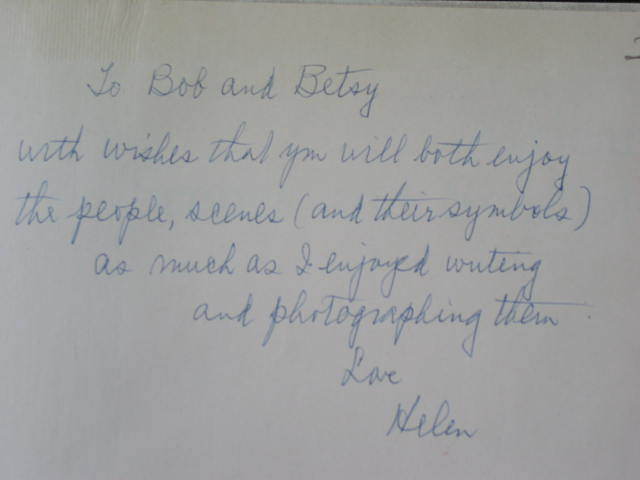 To Bob and Betsy
with wishes that you will both enjoy
the people, scenes (and their symbols)
as much as I enjoyed writing
and photographing them
Love
Helen